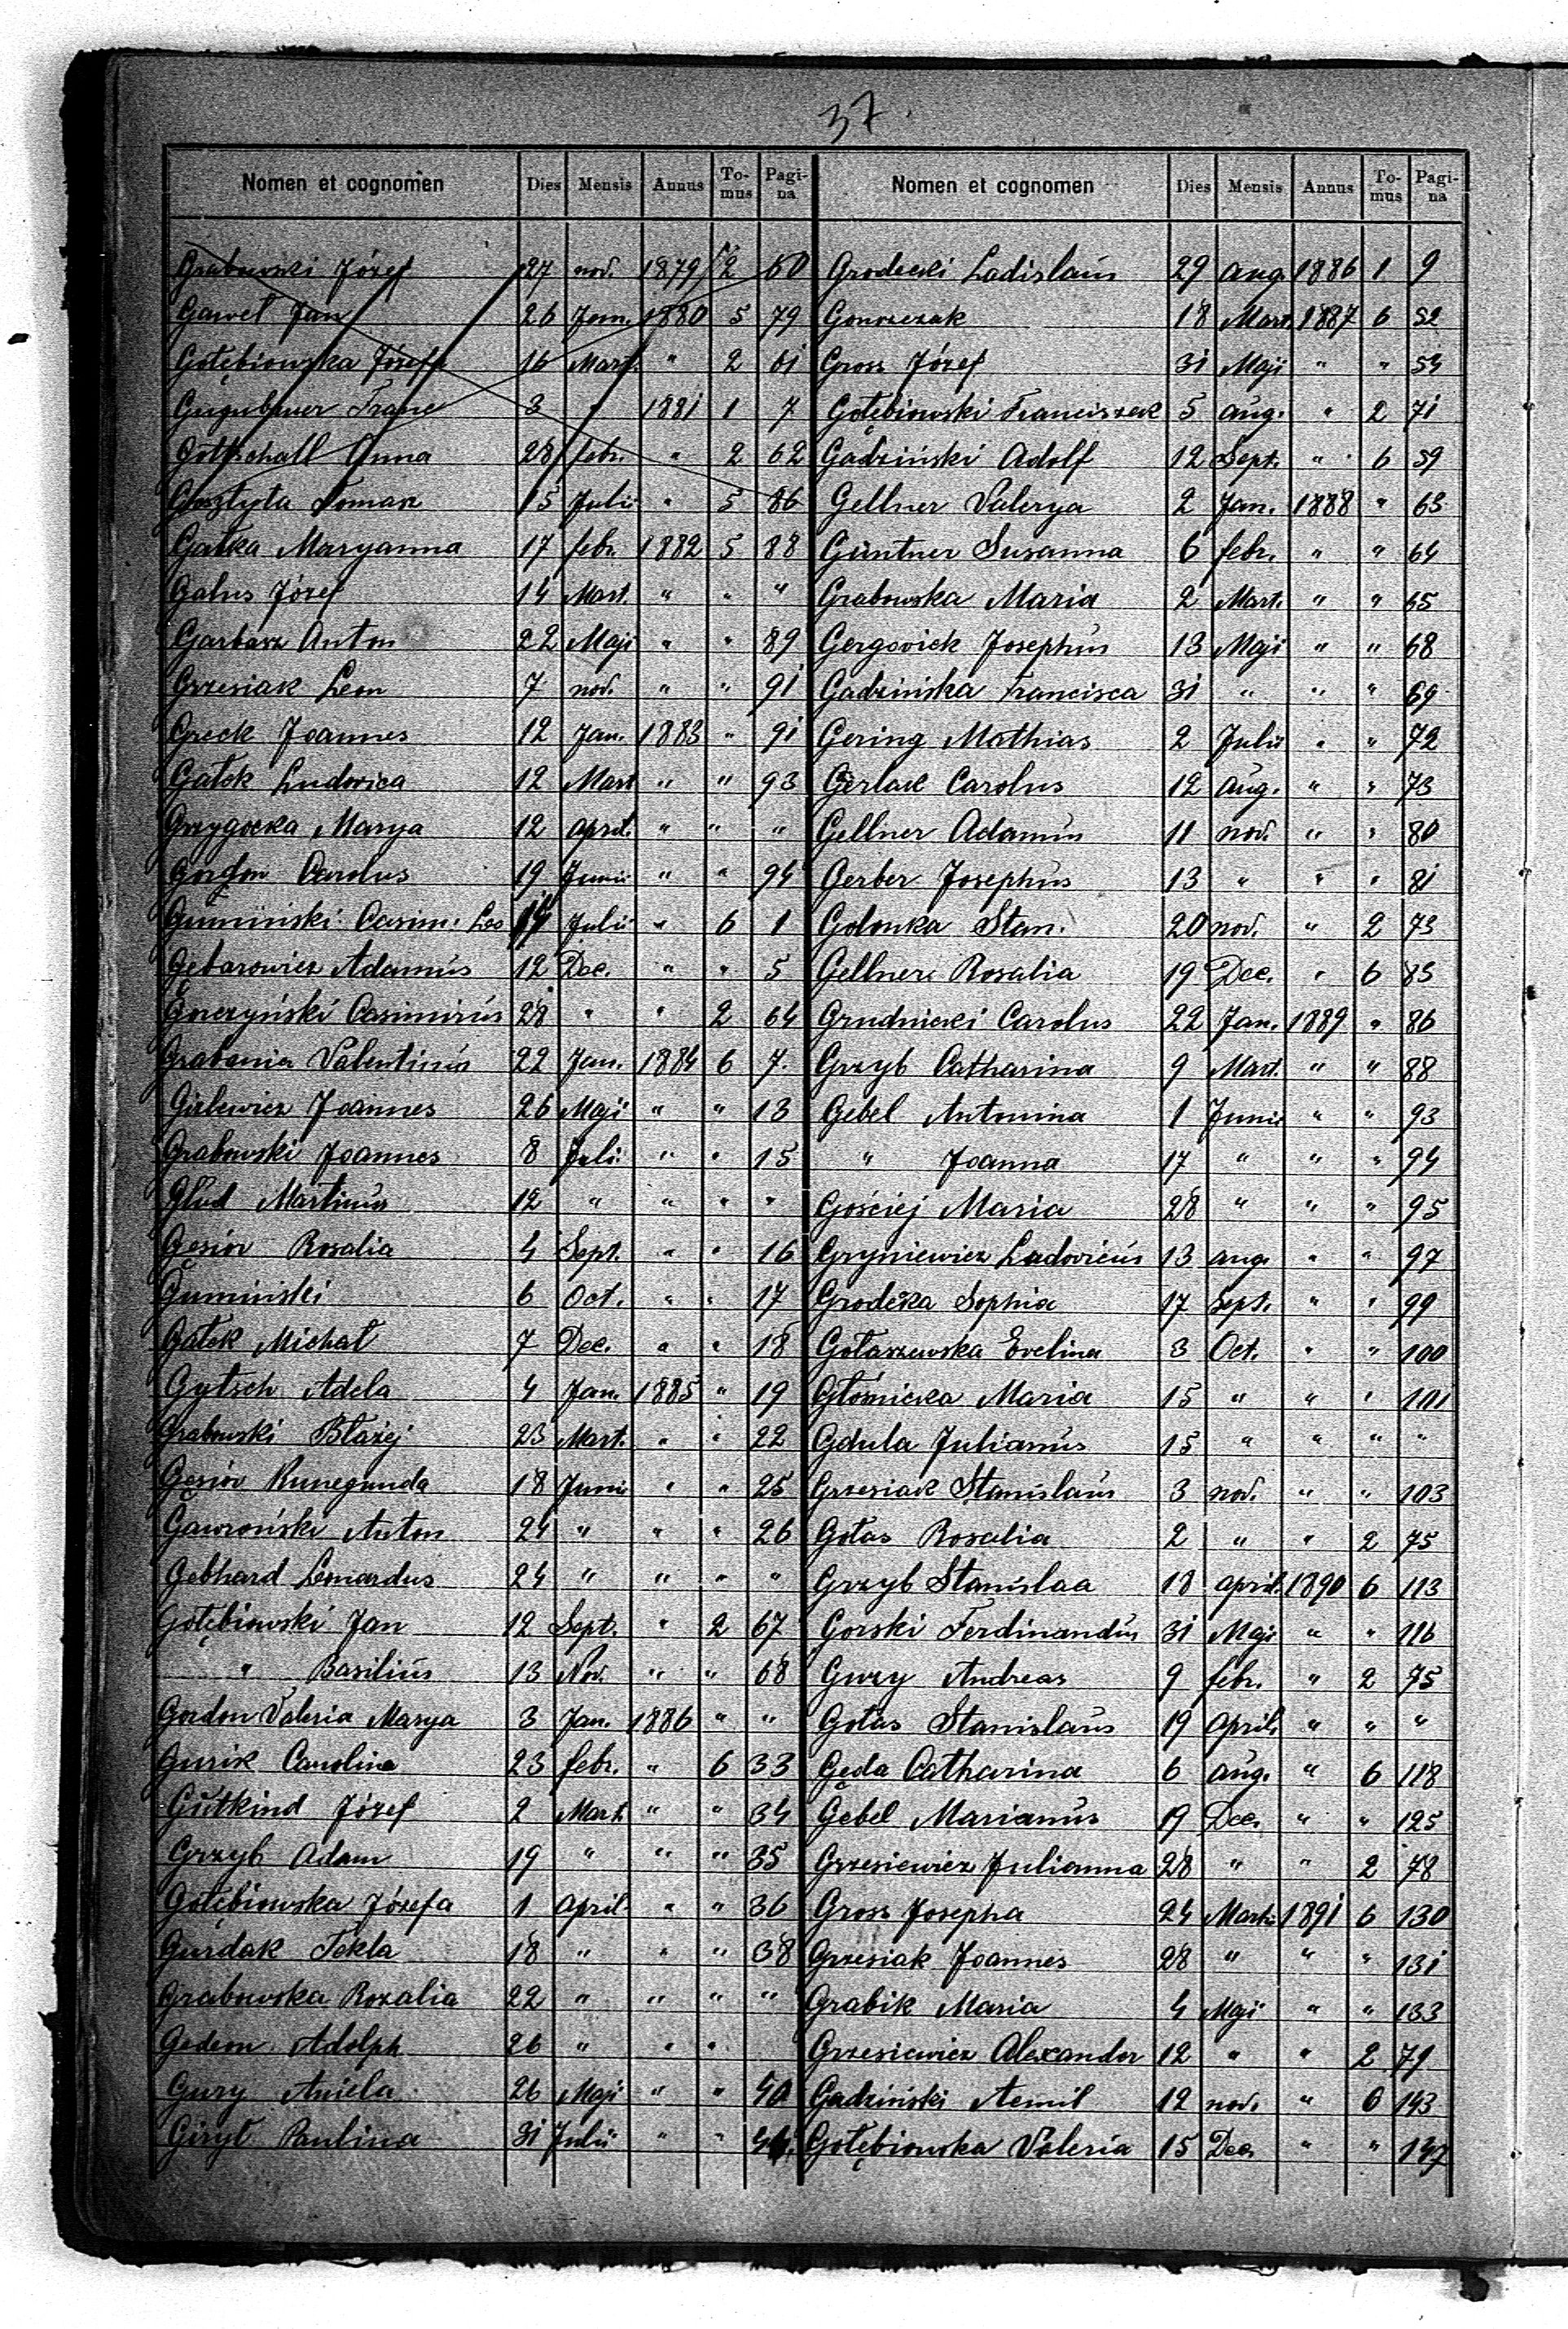 37.
Nomen et cognomen Dies Mensis Annus To-mus Pagi-na
Grabowski Józef 27 nov. 1879 2 60
Gaweł Jan 26 Jan. 1880 5 79
Gołębiowska Józefa 16 Mart. " 2 61
Gugubauer Franc 3 " 1881 1 7
Gottschall Anna 28 febr. " 2 62
Gosztyła Tomasz 15 Julii " 5 86
Gałka Maryanna 17 febr. 1882 5 88
Galus Józef 14 Mart. " " "
Garbarz Anton 22 Maji " " 89
Grzesiak Leon 7 nov. " " 91
Greck Joannes 12 Jan. 1883 " 91
Gałek Ludovica 12 Mart " " 93
Grzygocka Marya 12 april. " " "
Gordon Carolus 19 Junii " " 94
Gumiński Casim. Leo 14 Julii " 6 1
Gębarowicz Adamus 12 Dec. " " 5
Gorczyński Casimirus 28 " " 2 64
Grabania Valentinus 22 Jan. 1884 6 7.
Gizlewicz Joannes 26 Maji " " 13
Grabowski Joannes 8 Juli " " 15
Glud Martinus 12 " " " "
Gęsior Rosalia 4 Sept. " " 16
Gumiński 6 Oct. " " 17
Gałek Michał 7 Dec. " " 18
Gytsch Adela 4 Jan. 1885 " 19
Grabowski Błażej 23 Mart. " " 22
Gęsior Kunegunda 18 Junii " " 25
Gawroński Anton 24 " " " 26
Gebhard Leonardus 24 " " " "
Gołębiowski Jan 12 Sept. " 2 67
" Basilius 13 Nov. " " 68
Gordon Valeria Marya 3 Jan. 1886 " "
Gurik Carolina 23 febr. " 6 33
Gutkind Józef 2 Mart. " " 34
Grzyb Adam 19 " " " 35
Gołębiowska Józefa 1 April " " 36
Gurdak Tekla 18 " " " 38
Grabowska Rozalia 22 " " " "
Gedeon Adolph 26 " " "
Gury Aniela 26 Maji " " 40
Giryt Paulina 31 Julii " "
Nomen et cognomen Dies Mensis Annus To-mus Pagi-na
Grodecki Ladislaus 29 aug. 1886 1 9
Gonszczak 18 Mart. 1887 6 52
Gross Józef 31 Maji " " 54
Gołębiowski Franciszek 5 aug. " 2 71
Gadziński Adolf 12 Sept. " 6 59
Gellner Valerya 2 Jan. 1888 " 63
Güntner Susanna 6 febr. " " 64
Grabowska Maria 2 Mart. " " 65
Gergovick Josephus 13 Maji " " 68
Gadzińska Francisca 31 " " " 69
Gering Mathias 2 Julii " " 72
Gerlak Carolus 12 aug. " " 73
Gellner Adamus 11 nov. " " 80
Gerber Josephus 13 " " " 81
Golonka Stan. 20 nov. " 2 73
Gellner Rosalia 19 Dec. " 6 83
Grudnicki Carolus 22 Jan. 1889 " 86
Grzyb Catharina 9 Mart. " " 88
Gebel Antonina 1 Junii " " 93
" Joanna 17 " " " 94
Gościej Maria 28 " " " 95
Gryniewicz Ludovicus 13 aug. " " 97
Grodecka Sophia 17 Sept. " " 99
Gołaszewska Evelina 3 Oct. " " 100
Głośnicka Maria 15 " " " 101
Gdula Julianus 15 " " " "
Grzesiak Stanislaus 3 nov. " " 103
Gołas Rosalia 2 " " 2 75
Grzyb Stanislaa 18 april. 1890 6 113
Gorski Ferdinandus 31 Maji " " 116
Gury Andreas 9 febr. " 2 75
Gołas Stanislaus 19 April. " " "
Gęda Catharina 6 aug. " 6 118
Gebel Marianus 19 Dec. " " 125
Grzesiewicz Julianna 28 " " 2 78
Gross Josepha 24 Martii 1891 6 130
Grzesiak Joannes 28 " " " 131
Grabik Maria 4 Maji " " 133
Grzesiewicz Alexander 12 " " 2 79
Gadziński Aemil 12 nov. " 6 143
Gołębiowska Valeria 15 Dec. " " 147